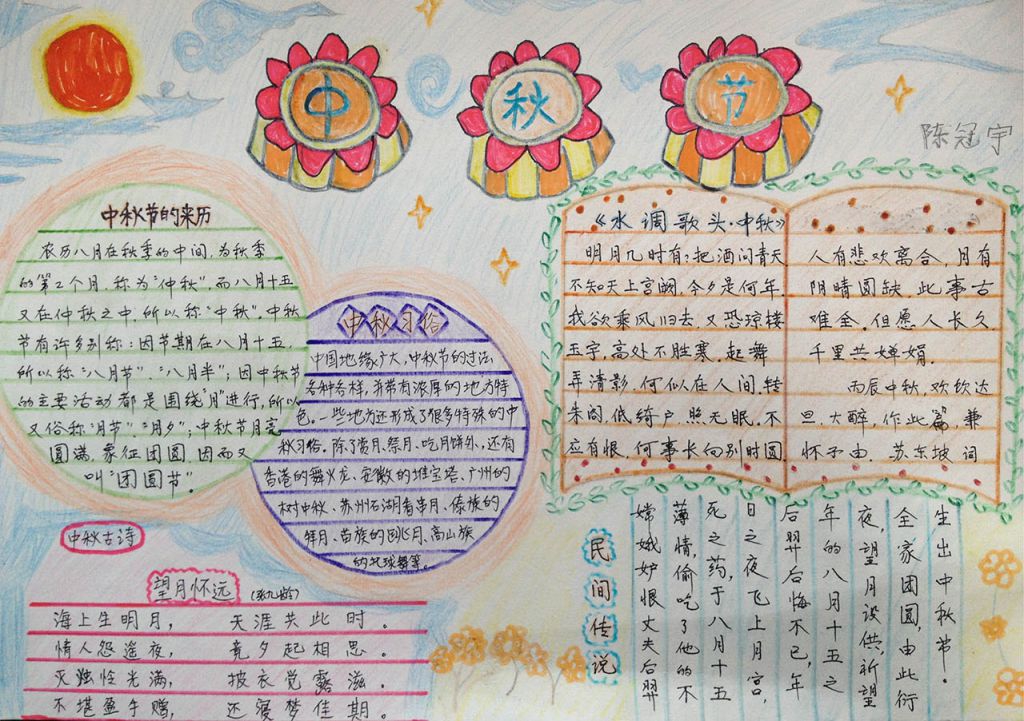 中秋节
陈冠宇
中秋节的来历
农历八月在秋季的中间,为秋季
的第2个月,称为“仲秋”,而八月十五
又在仲秋之中,所以称“中秋”。中秋
节有许多别称:因节期在八月十五,
所以称“八月节”、“八月半”;因中秋节
的主要活动都是围绕“月”进行,所以
又俗称“月节”、“月夕”;中秋节月亮
圆满,象征团圆,因而又
叫“团圆节”。
中秋习俗
中国地缘广大,中秋节的过法
各种各样,并带有浓厚的地方特
色。一些地方还形成了很多特殊的中
秋习俗。除了赏月、祭月、吃月饼外,还有
香港的舞火龙、安徽的堆宝塔、广州的
树中秋、苏州石湖看串月、傣族的
拜月、苗族的跳月、高山族
的托球舞等。
《水调歌头·中秋》
明月几时有?把酒问青天
不知天上宫阙,今夕是何年
我欲乘风归去,又恐琼楼
玉宇,高处不胜寒,起舞
弄清影,何似在人间,转
朱阁,低绮户,照无眠,不
应有恨,何事长向别时圆
人有悲欢离合,月有
阴晴圆缺,此事古
难全。但愿人长久,
千里共婵娟.
丙辰中秋,欢饮达
旦,大醉,作此篇,兼
怀子由. 苏东坡 词
中秋古诗
望月怀远 (张九龄)
海上生明月, 天涯共此时。
情人怨遥夜, 竟夕起相思。
灭烛怜光满, 披衣觉露滋。
不堪盈手赠, 还寝梦佳期。
民间传说
嫦娥妒恨丈夫后羿
薄情,偷吃了他的不
死之药,于八月十五
日之夜飞上月宫,
后羿后悔不已,年
年的八月十五之
夜,望月设供,祈望
全家团圆,由此衍
生出中秋节。